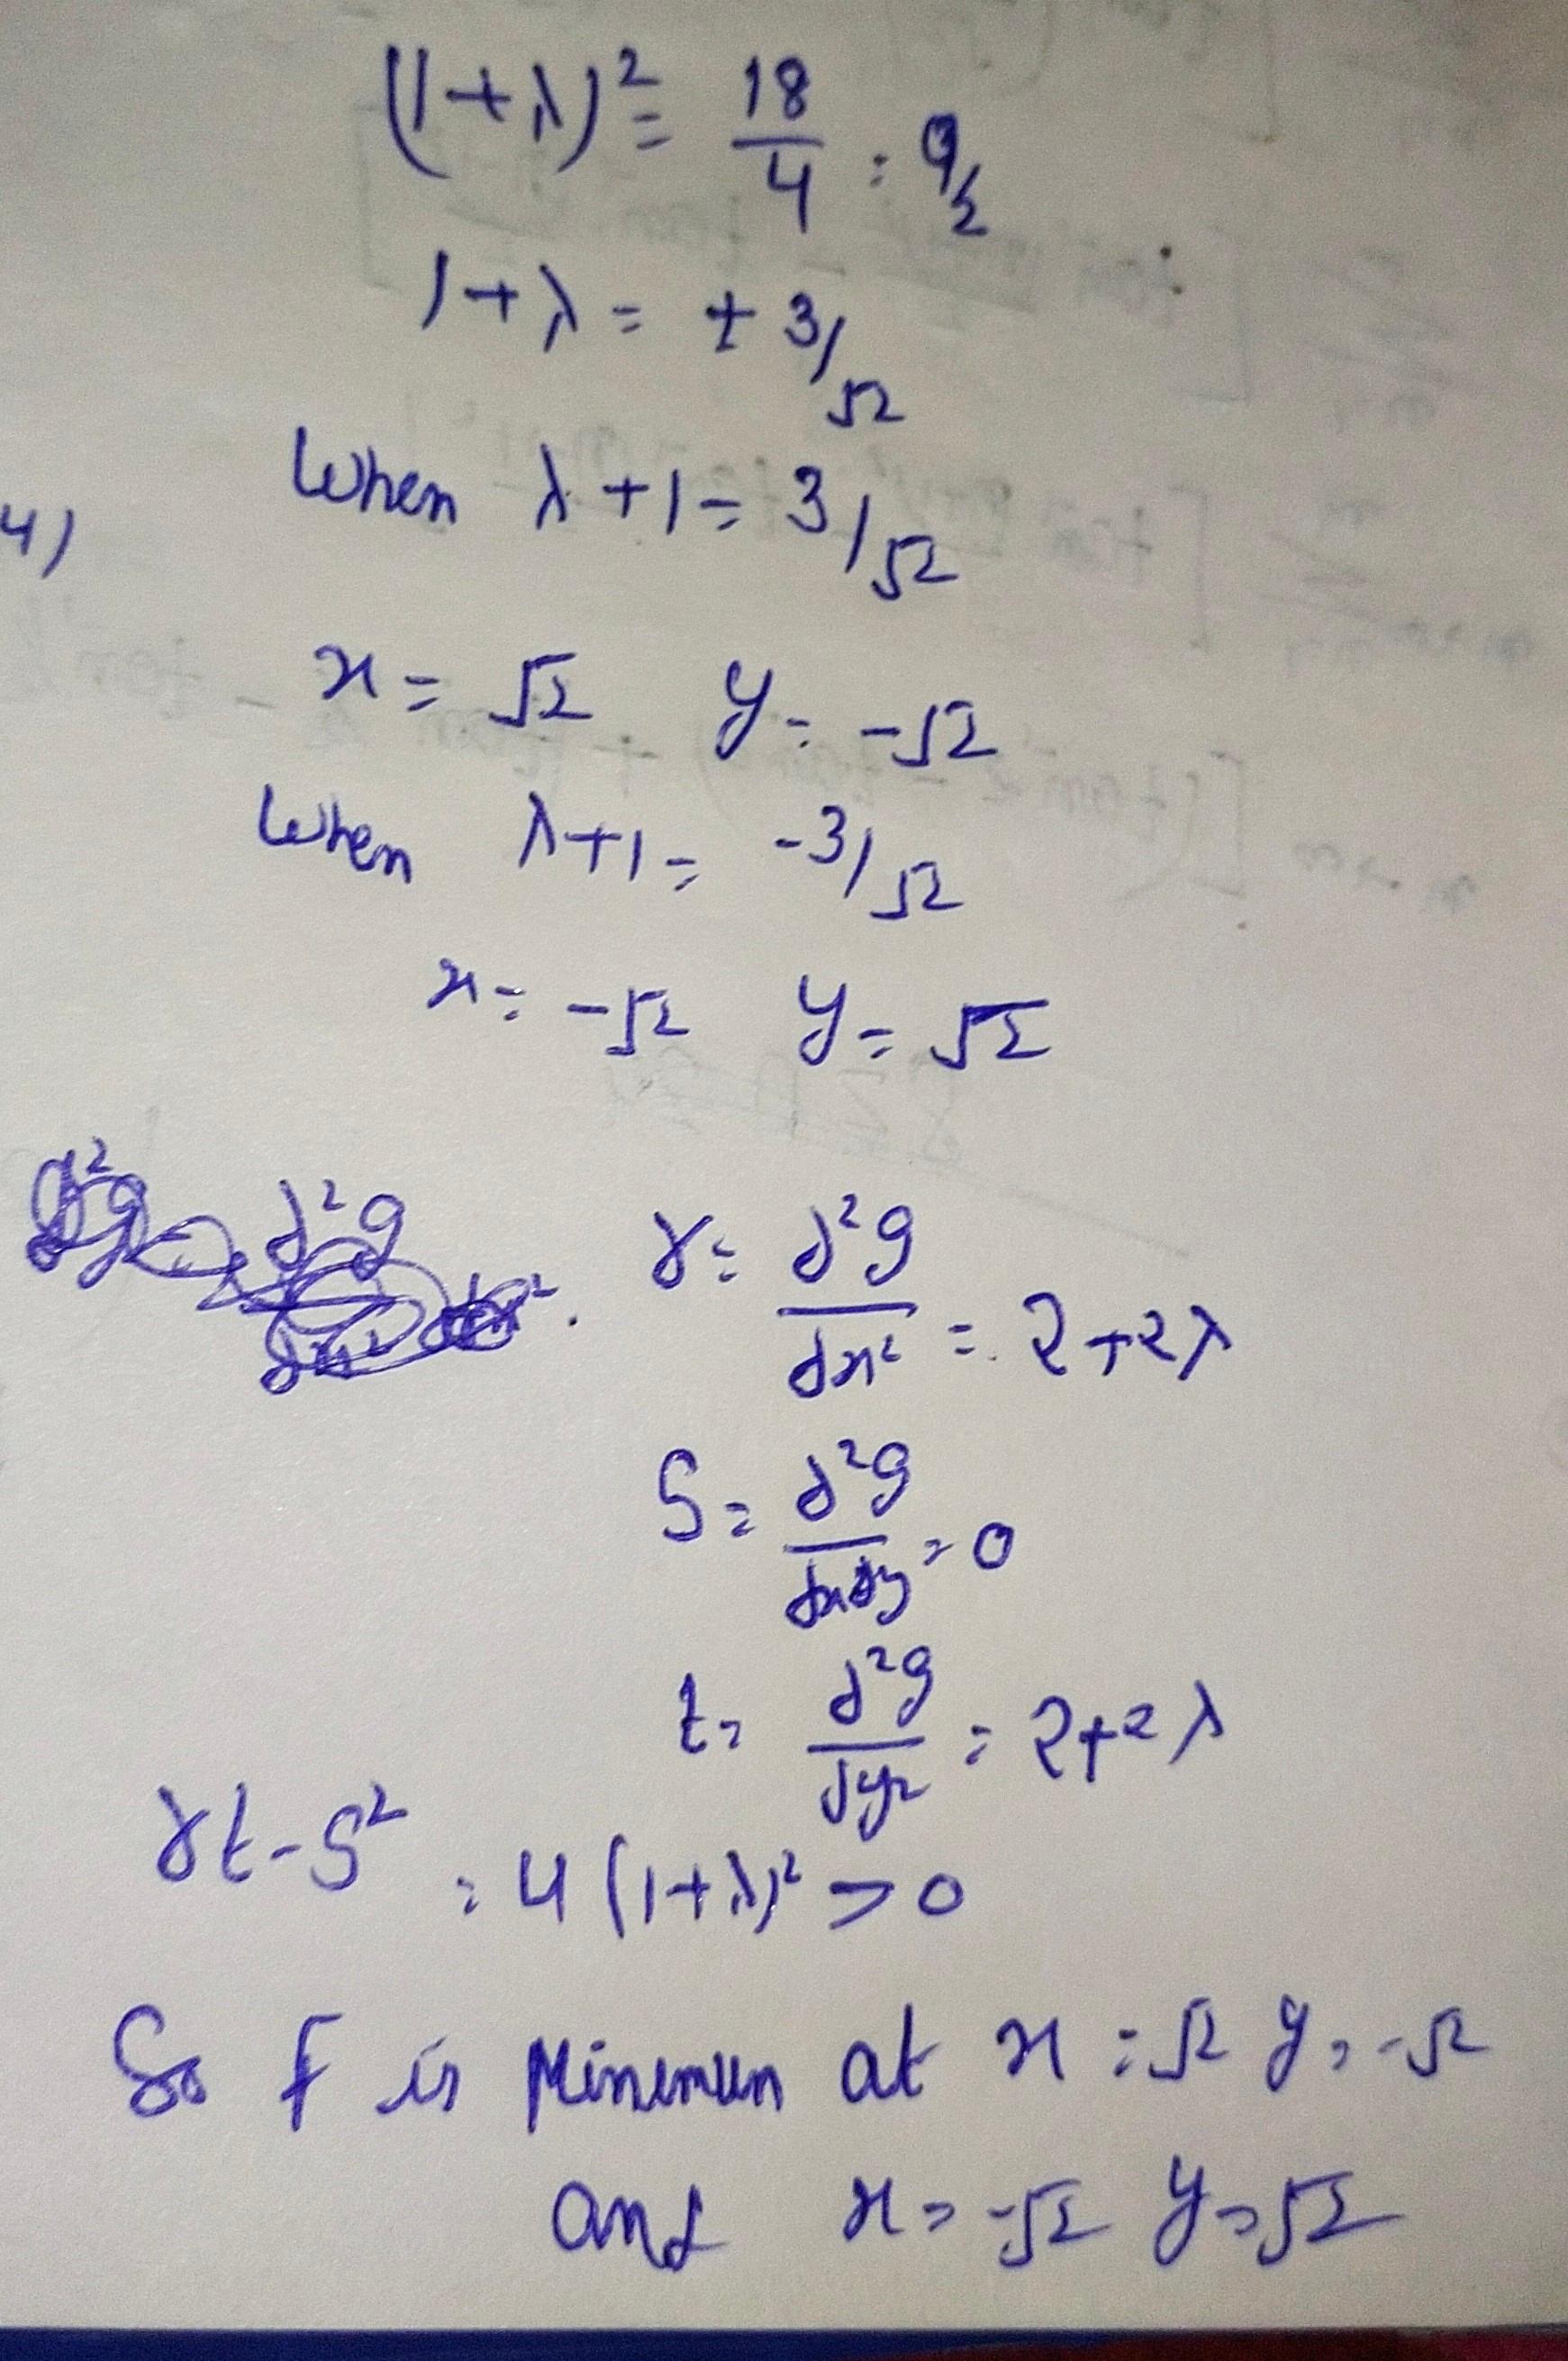 (1+λ)² = 18/4 = 9/2
1+λ = ± 3/√2
4)
When λ+1 = 3/√2
x = √2 y = -√2
When λ+1 = -3/√2
x = -√2 y = √2
r = ∂²g/∂x² = 2+2λ
S = ∂²g/∂x∂y = 0
t = ∂²g/∂y² = 2+2λ
rt-S² = 4(1+λ)² > 0
So f is Minimum at x = √2 y = -√2
and x = -√2 y = √2